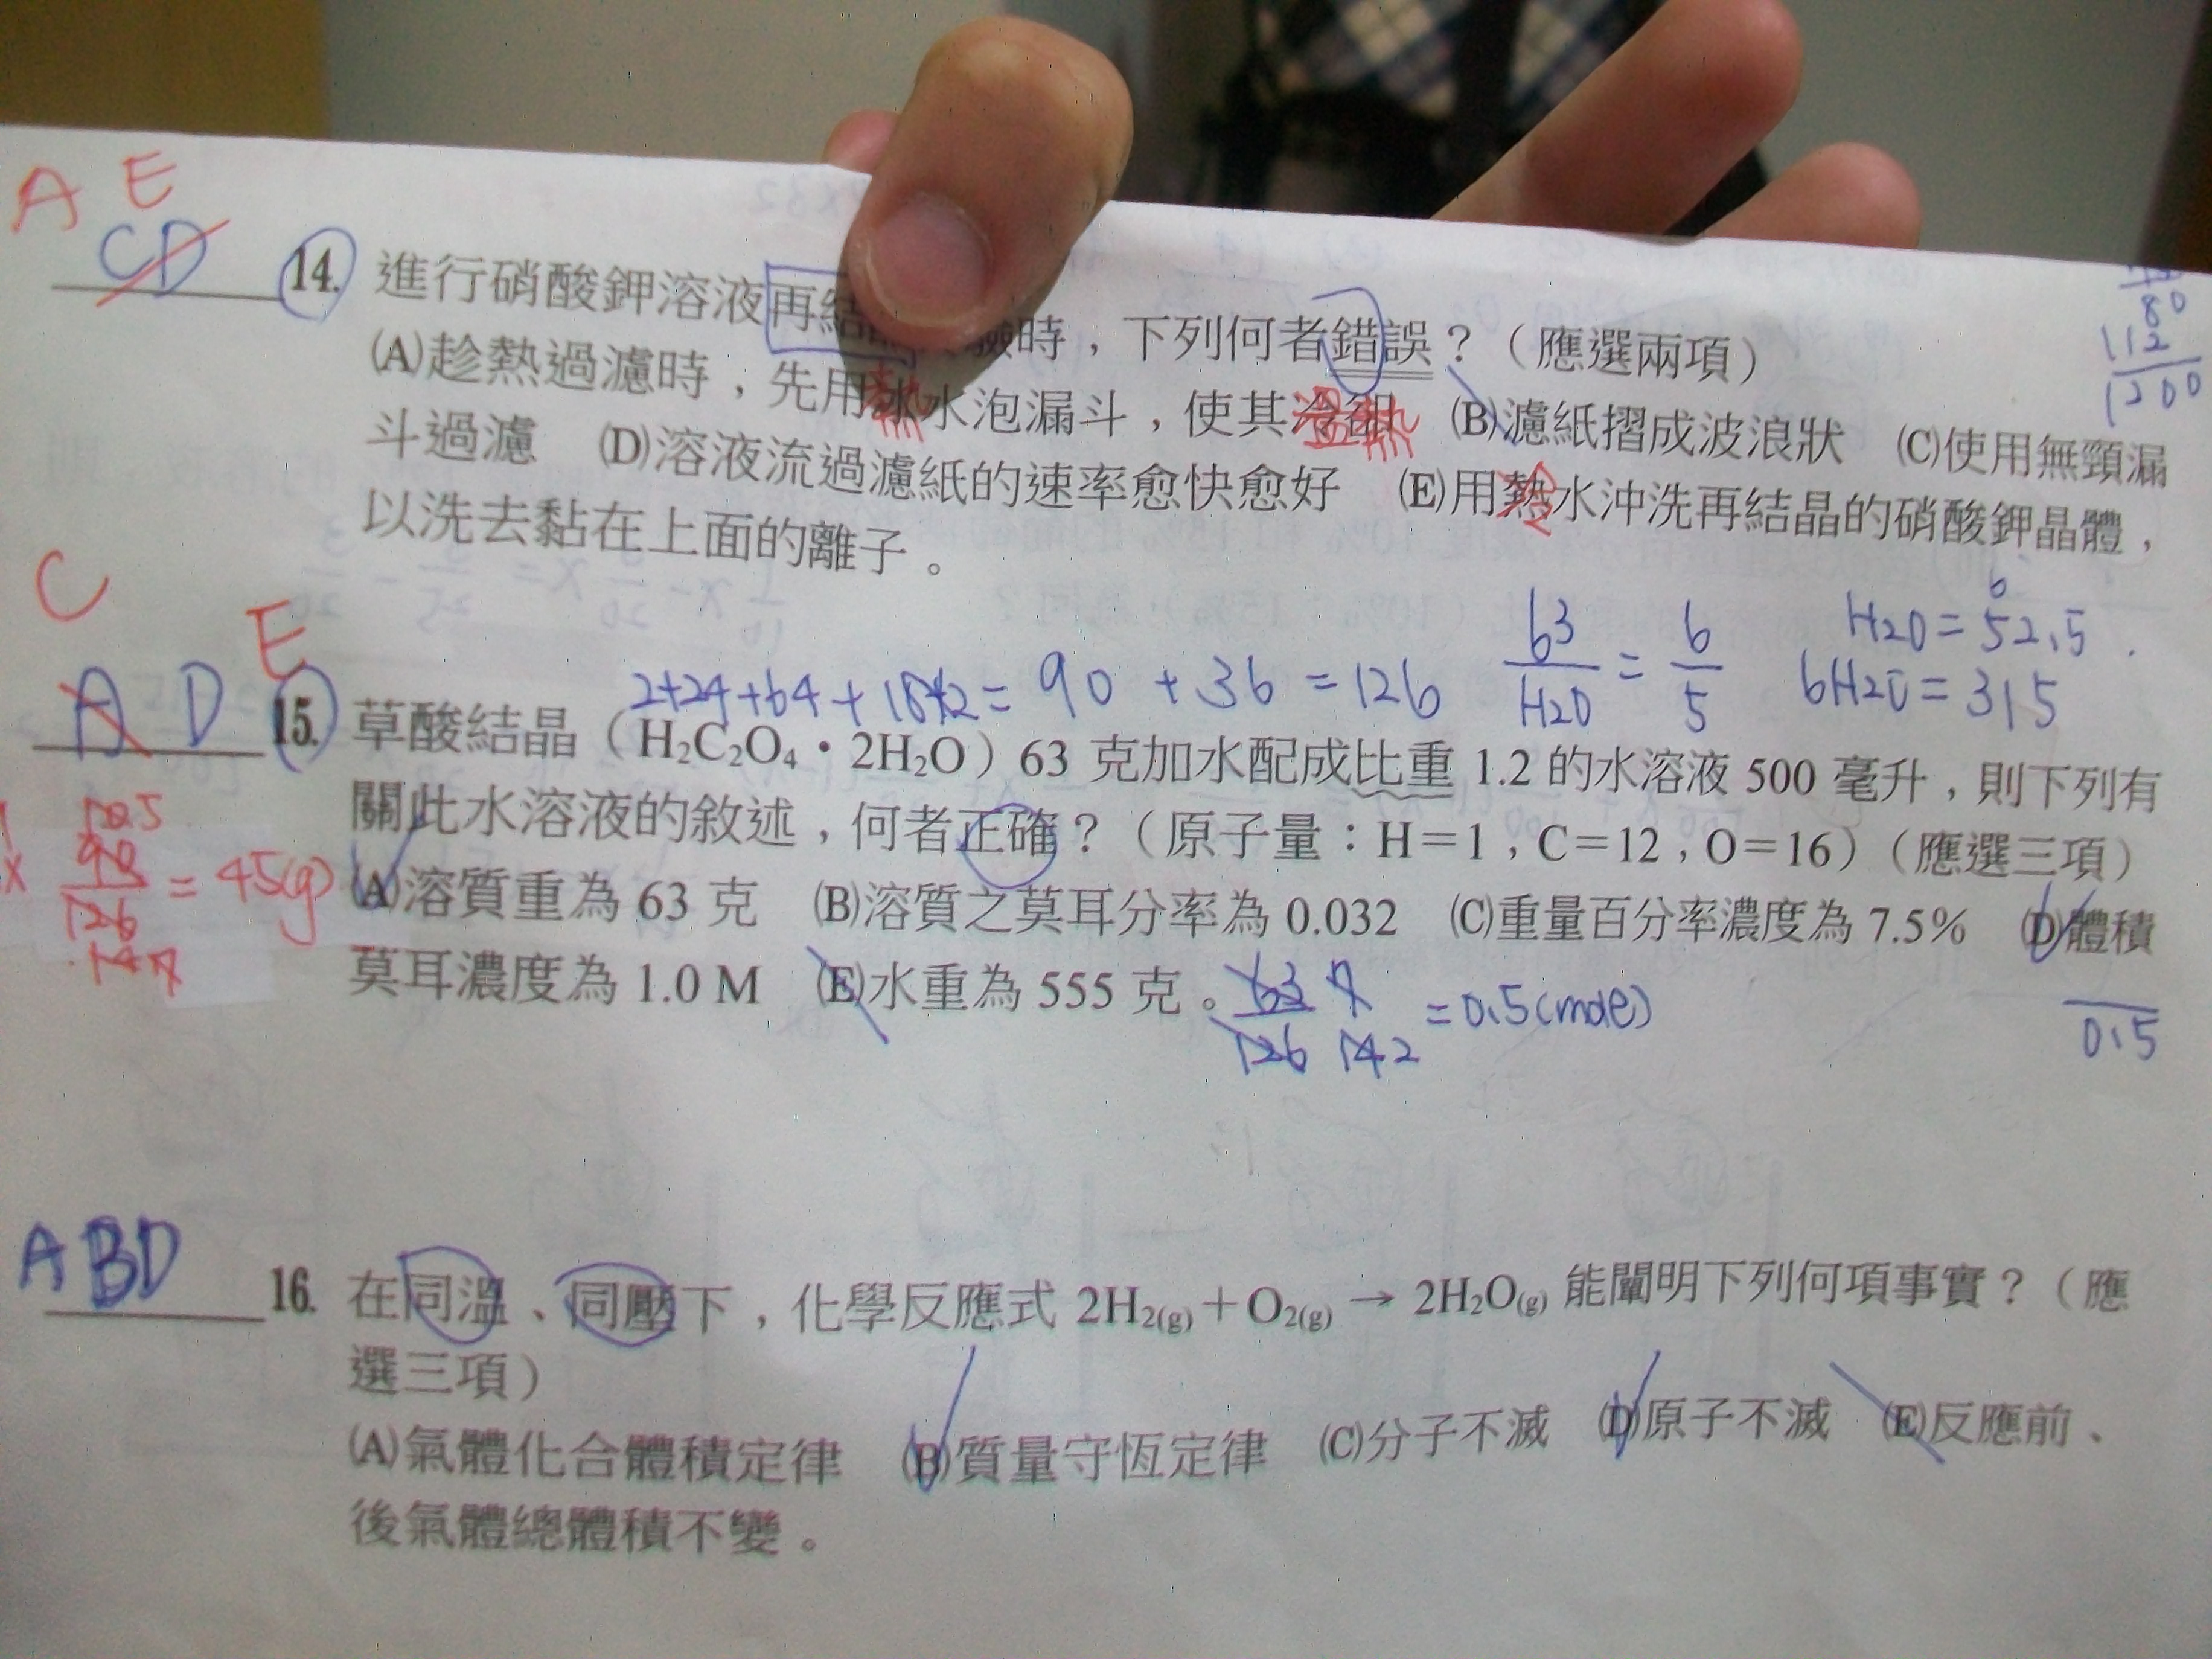 A E
CD 14. 進行硝酸鉀溶液再結 驗時，下列何者錯誤？（應選兩項）
80
112
1200
(A)趁熱過濾時，先用冰水泡漏斗，使其冷卻 (B)濾紙摺成波浪狀 (C)使用無頸漏
熱 溫熱
斗過濾 (D)溶液流過濾紙的速率愈快愈好 (E)用熱水沖洗再結晶的硝酸鉀晶體，
冷
以洗去黏在上面的離子。
C E
2+24+64+18×2= 90 + 36 = 126 63/H2O = 6/5 H2O = 52.5
6H2O = 315
A D 15. 草酸結晶（H₂C₂O₄・2H₂O）63 克加水配成比重 1.2 的水溶液 500 毫升，則下列有
關此水溶液的敘述，何者正確？（原子量：H＝1，C＝12，O＝16）（應選三項）
90/126 = 45(g)
(A)溶質重為 63 克 (B)溶質之莫耳分率為 0.032 (C)重量百分率濃度為 7.5% (D)體積
莫耳濃度為 1.0 M (E)水重為 555 克。
63/126 = 0.5(mole)
0.5
ABD 16. 在同溫、同壓下，化學反應式 2H₂(g)＋O₂(g) → 2H₂O(g) 能闡明下列何項事實？（應
選三項）
(A)氣體化合體積定律 (B)質量守恆定律 (C)分子不滅 (D)原子不滅 (E)反應前、
後氣體總體積不變。